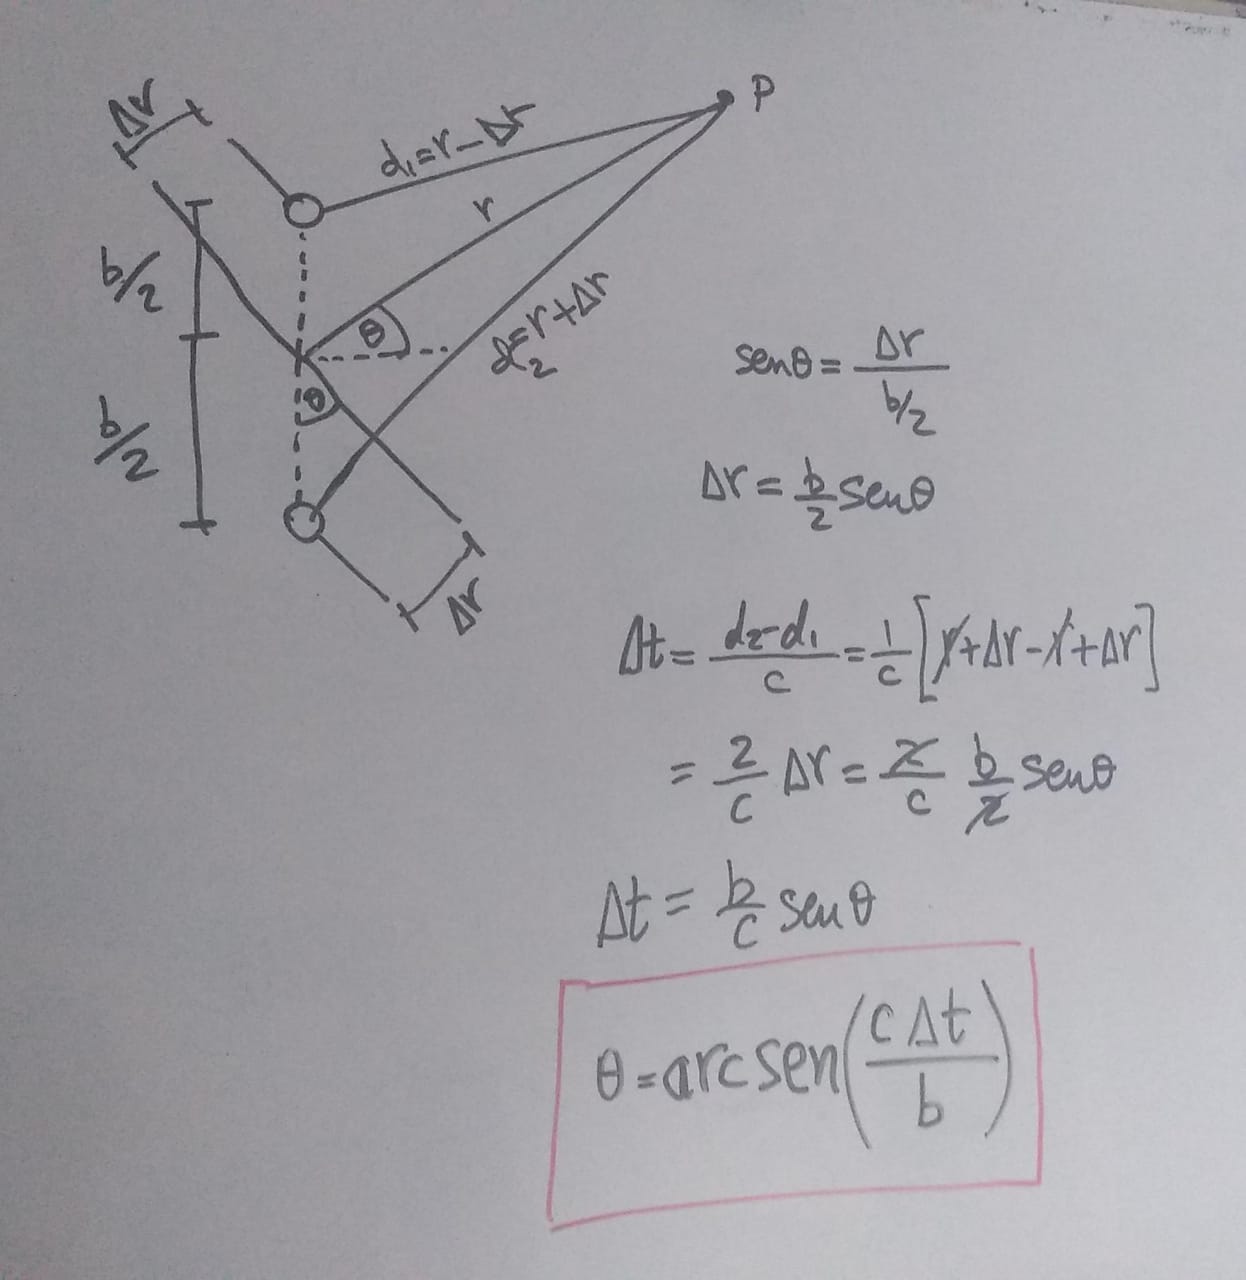 Δr
P
d₁=r-Δr
r
b/2
θ
d₂=r+Δr
θ
b/2
Δr
senθ = Δr / b/2
Δr = b/2 senθ
Δt = d₂-d₁ / c = 1/c [r+Δr-r+Δr]
= 2/c Δr = 2/c b/2 senθ
Δt = b/c senθ
θ = arcsen(cΔt / b)